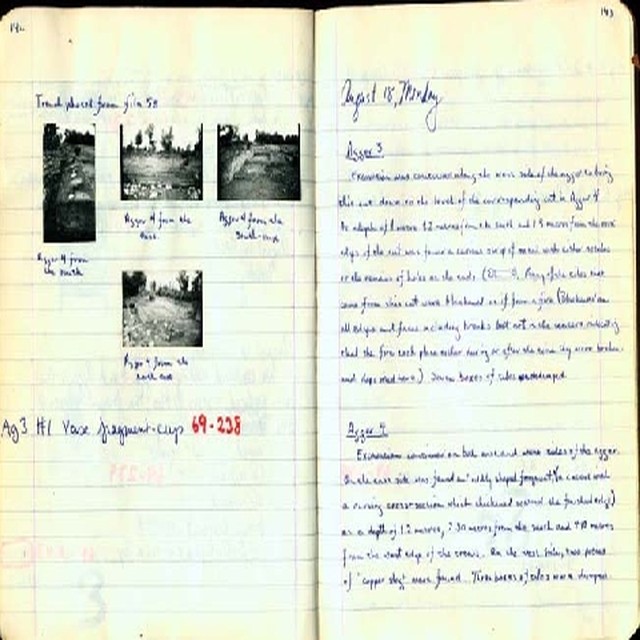 142
Trench photos from film 58
Agger 4 from the
east
Agger 4 from the
South-east
Agger 4 from
the south
Agger 4 from the
east end
Ag 3 #1 Vase fragment-cup 69-238
143
August 18, Monday
Agger 3
Excavation was continued along the west side of the agger to bring
this cut down to the level of the corresponding cut in Agger 4
At a depth of 1 meter, 1.2 meters from the south and 1.5 meters from the west
edge of the cut was found a curious strip of metal with either
or the remains of holes at the ends
came from this cut were blackened as if from a fire (Blackened on
all edges and faces including breaks but not in the
that the fire took place either during or after the time they were broken
and deposited here.) Seven boxes of tiles were dumped.
Agger 4
Excavation continued on both east and west sides of the agger.
On the east side was found an oddly shaped fragment
a curving cross-section which thickened toward the finished edge)
at a depth of 1.2 meters, 2.30 meters from the south and
from the west edge of the trench. On the west side, two pieces
of "copper slag" were found. Three boxes of tiles were dumped.